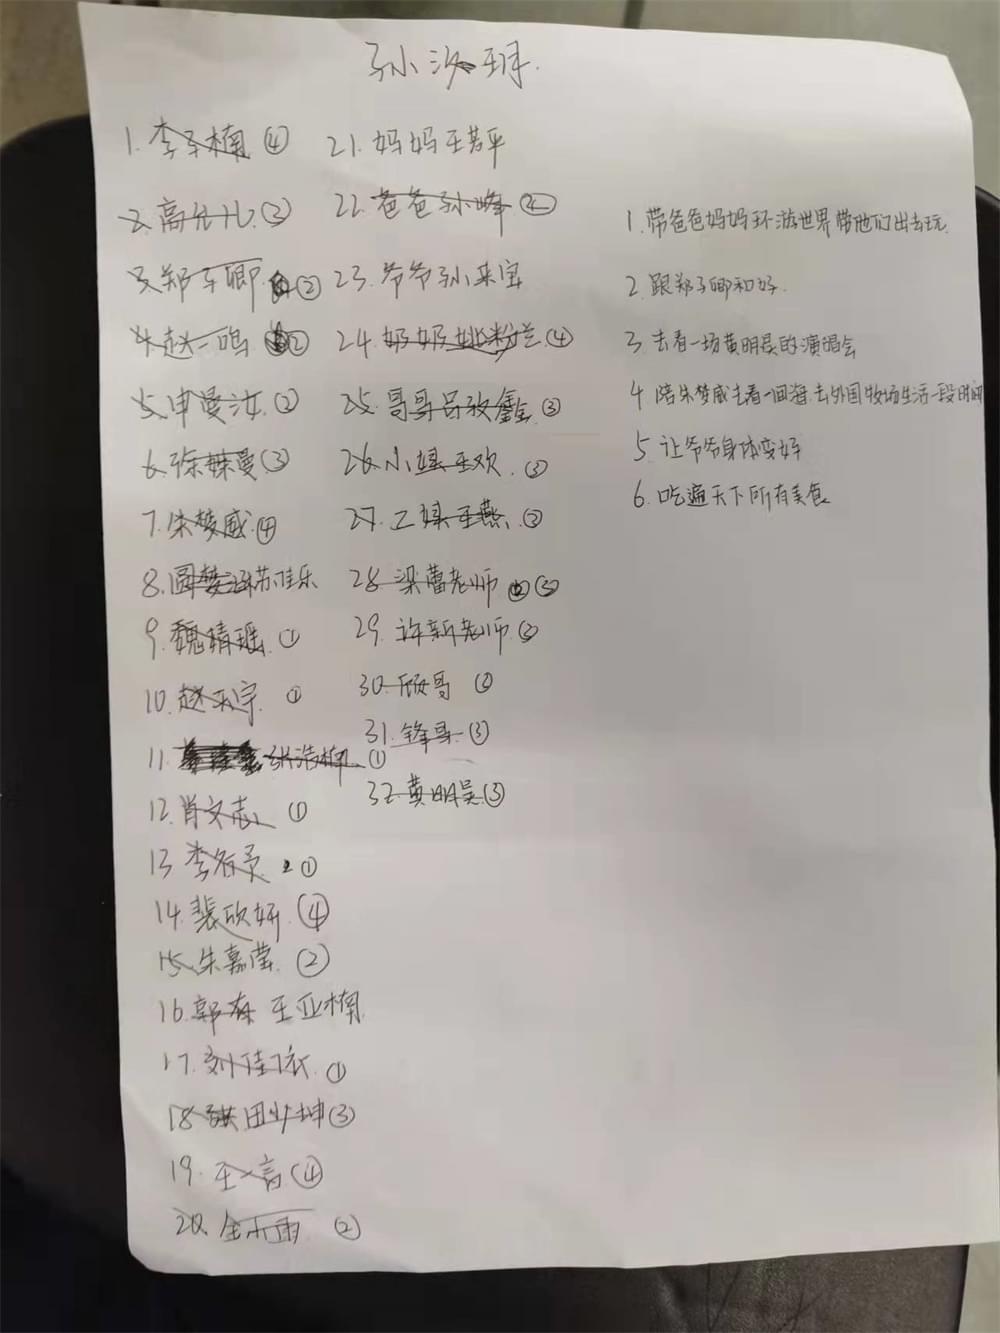 孙汝珂.
1. 李子楠 ④
2. 高允礼 ③
3. 郑子卿 ②
4. 赵一鸣 ②
5. 申曼汝 ②
6. 徐曼 ③
7. 朱梦威 ④
8. 苏佳乐
9. 魏精瑶 ①
10. 赵天宇 ①
11. 张浩楠 ①
12. 肖文志 ①
13 李 ①
14. 裴欣妍 ④
15. 朱嘉莹 ②
16. 郭存 王亚楠
17. 刘佳依 ①
18 田少坤 ③
19. 王一言 ④
20. 金小雨 ②
21. 妈妈王若平
22. 爸爸孙峰
23. 爷爷孙来宝
24. 奶奶姚粉兰 ④
25. 哥哥吕孜鑫 ③
26. 小姨王欢 ③
27. 二姨王燕 ③
28 梁蕾老师 ③
29. 许新老师 ③
30. 顾哥 ②
31. 锋哥 ③
32. 黄明昊 ③
1. 带爸爸妈妈环游世界带他们出去玩
2. 跟郑子卿和好.
3. 去看一场黄明昊的演唱会
4. 陪朱梦威去看一回海.去外国牧场生活一段时间
5. 让爷爷身体变好
6. 吃遍天下所有美食